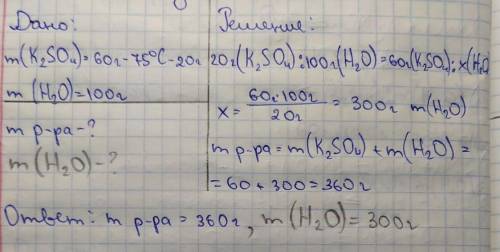 Дано:
m(K₂SO₄)=60г-75°C-20г
m (H₂O)=100г
m р-ра-?
m(H₂O)-?
Решение:
20г(K₂SO₄):100г(H₂O)=60г(K₂SO₄):x(H₂O
x= 60г·100г / 20г = 300г m(H₂O)
m р-ра=m(K₂SO₄)+m(H₂O)=
=60+300=360г
Ответ: m р-ра=360г, m(H₂O)=300г